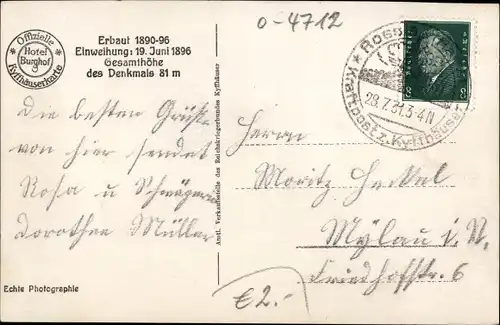 o-4712
Offizielle
Hotel
Burghof
Kyffhäuserkarte
Erbaut 1890-96
Einweihung: 19. Juni 1896
Gesamthöhe
des Denkmals 81 m
28.7.31.3-4N
Die besten Grüße
von hier sendet
Rosa u Schwägerin
Dorothee Müller
Herrn
Moritz Heckel
Mylau i. V.
Friedhofstr. 6
Amtl. Verkaufsstelle des Reichskriegerbundes Kyffhäuser
Echte Photographie
€2.-